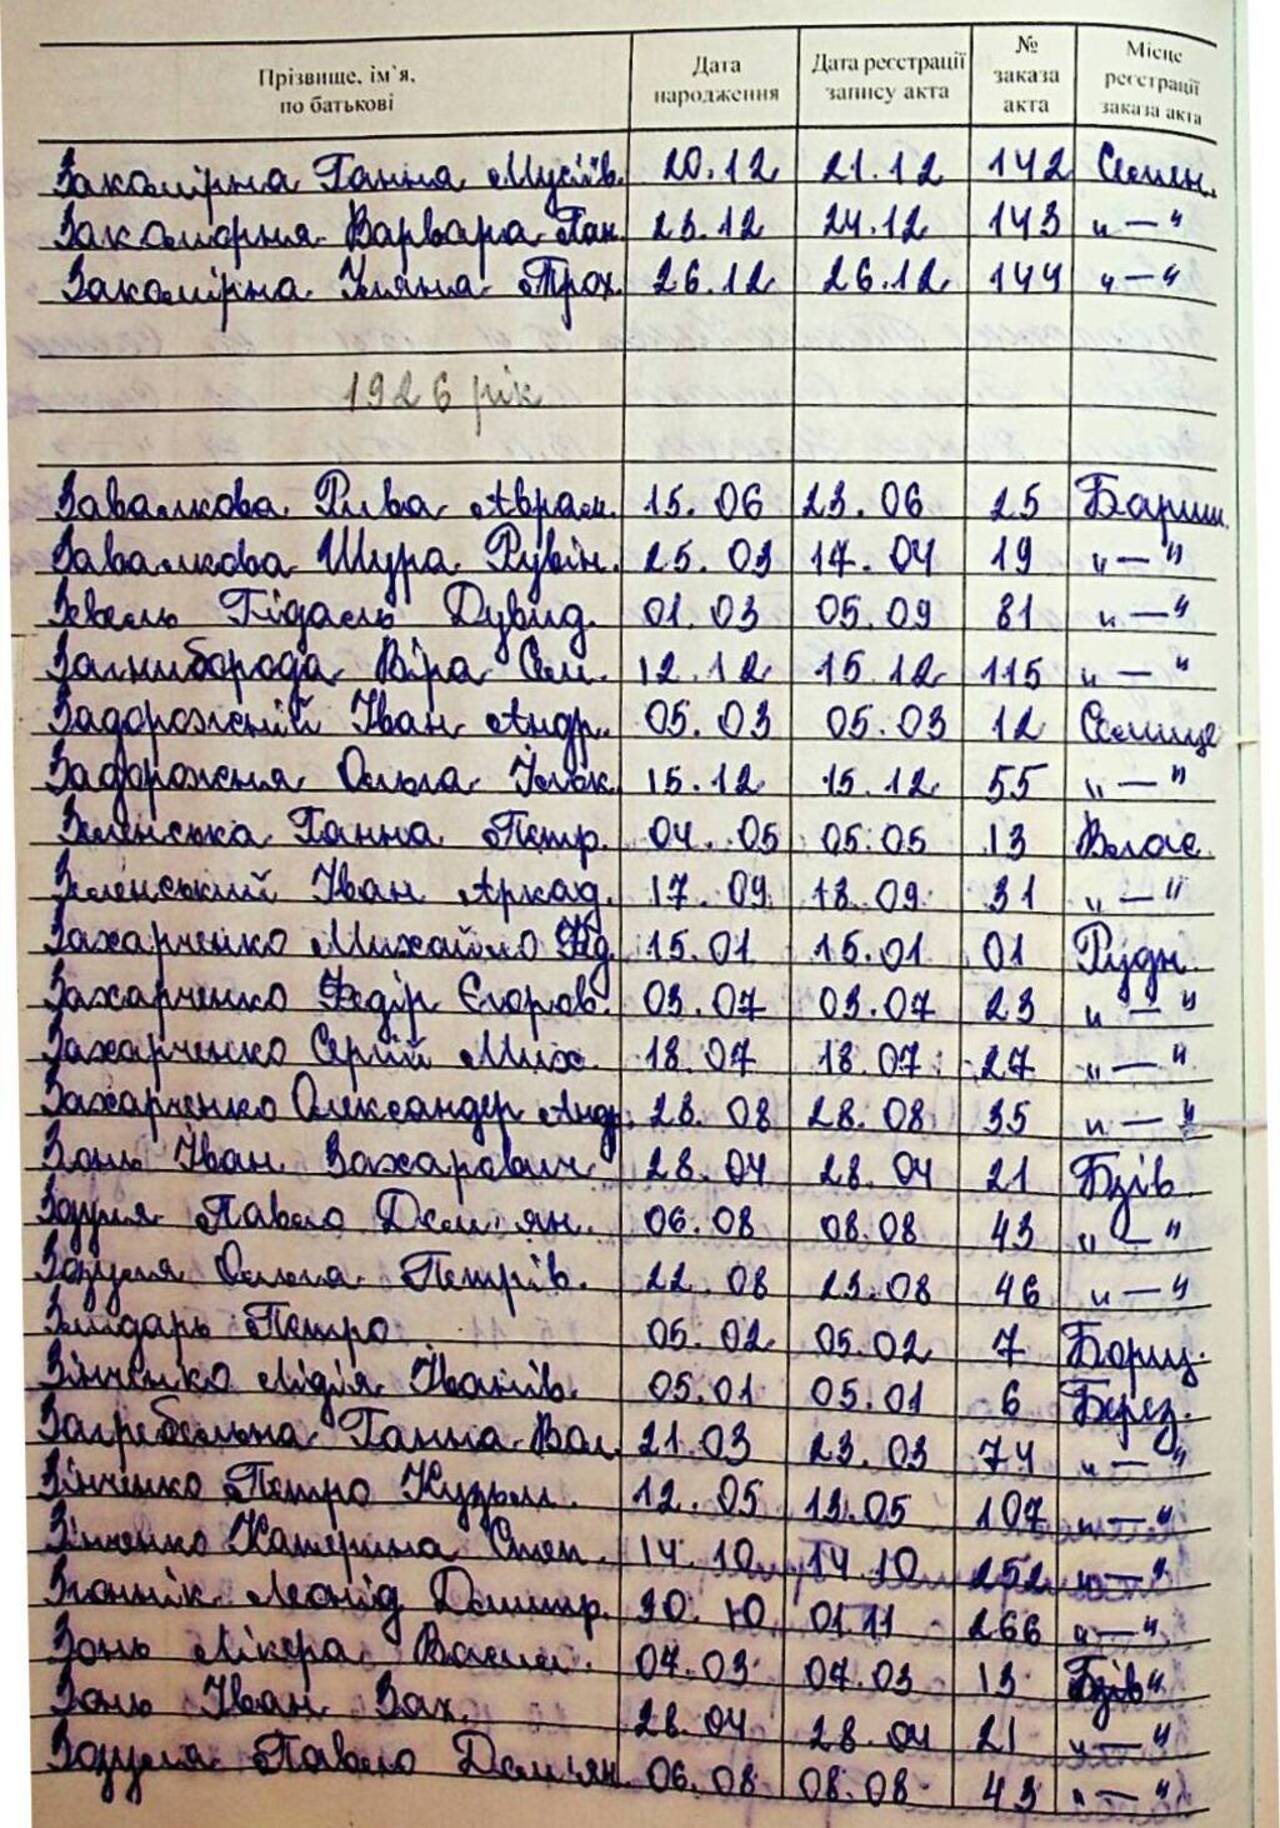 Прізвище, ім'я, по батькові | Дата народження | Дата реєстрації запису акта | № заказа акта | Місце реєстрації заказа акта
Закомірна Ганна Мусіїв. 20.12 21.12 142 Семен.
Закоморня Варвара Пан. 23.12 24.12 143 "—"
Закомірна Уляна Трох. 26.12 26.12 144 "—"
1926 рік
Завалкова Рива Аврам. 15.06 23.06 25 Бариш.
Завалкова Шура Рувін. 25.03 17.04 19 "—"
Зевель Гідаль Дувид. 01.03 05.09 81 "—"
Загниборода Віра Сем. 12.12 15.12 115 "—"
Задорожній Іван Андр. 05.03 05.03 12 Селище
Задорожня Ольга 15.12 15.12 55 "—"
Зеленська Ганна Петр. 04.05 05.05 13 Влас.
Зеленський Іван Аркад. 17.09 18.09 31 "—"
Захарченко Михайло 15.01 15.01 01 Рудн.
Захарченко Федір Єгоров. 03.07 03.07 23 "—"
Захарченко Сергій Мих. 18.07 18.07 27 "—"
Захарченко Олександер Андр. 28.08 28.08 35 "—"
Зонь Іван Захарович 28.04 28.04 21 Бзів.
Зозуля Павло Дем'ян. 06.08 08.08 43 "—"
Зозуля Ольга Петрів. 22.08 23.08 46 "—"
Злидарь Петро 05.02 05.02 7 Борщ.
Зінченко Лідія Іванів. 05.01 05.01 6 Берез.
Загребельна Ганна Вол. 21.03 23.03 74 "—"
Зінченко Петро Кузьм. 12.05 13.05 107 "—"
Зінченко Катерина Степ. 14.10 14.10 252 "—"
Леонід Дмитр. 30.10 01.11 266 "—"
Зонь Лікера Васил. 07.03 07.03 13 Бзів"
Зонь Іван Зах. 28.04 28.04 21 "—"
Зозуля Павло Дем'ян. 06.08 08.08 43 "—"